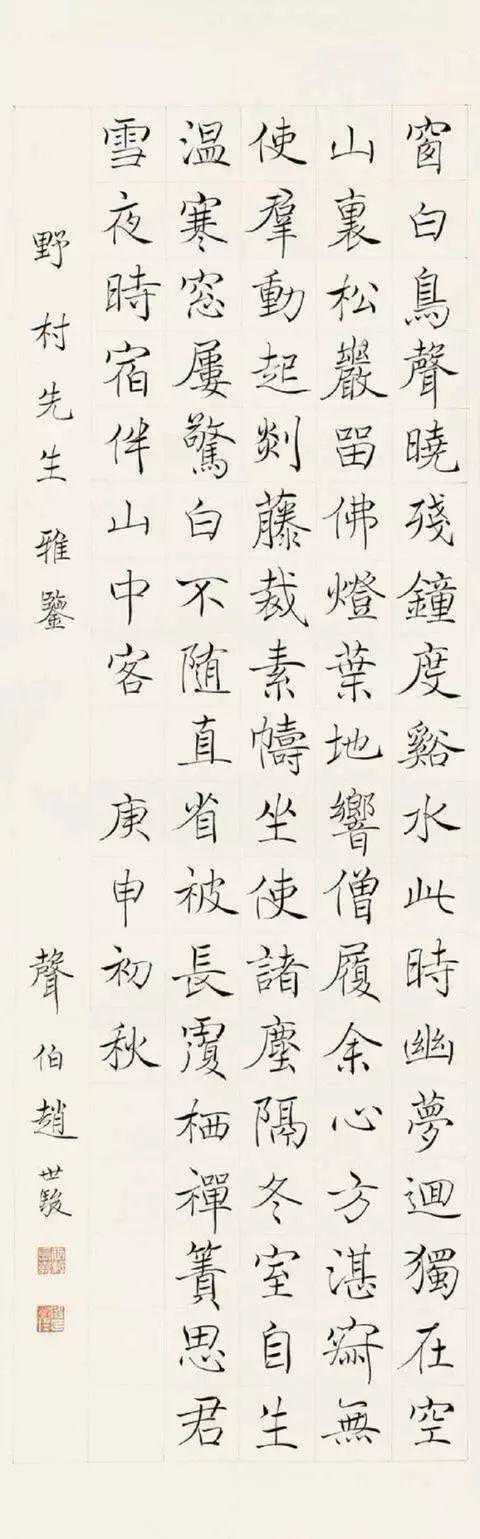 窗白鳥聲曉殘鐘度谿水此時幽夢迴獨在空
山裏松巖留佛燈葉地響僧履余心方湛寂無
使羣動起剡藤裁素幬坐使諸塵隔冬室自生
温寒窓屢驚白不随直省被長覆栖禪簀思君
雪夜時宿伴山中客 庚申初秋
野村先生雅鑒
聲伯趙世駿